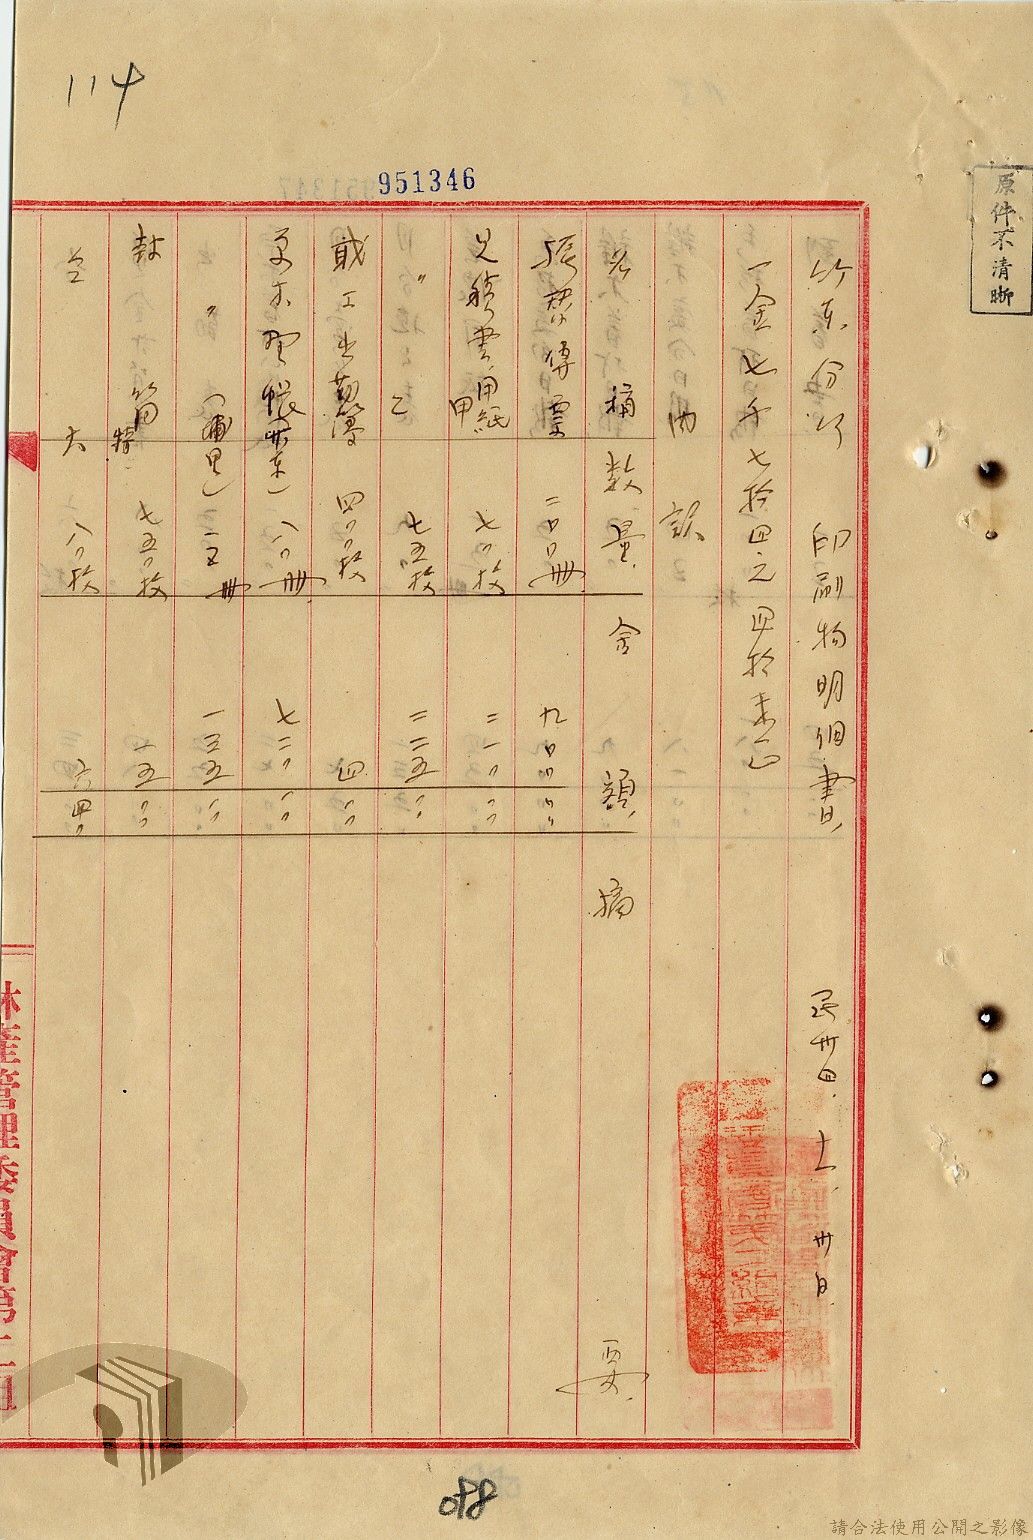 114
951346
原件不清晰
竹東分行 印刷物明個書 民卅四、十一、卅日
一金七千七拾四元四拾素正
內訳
名稱 數量 金額 摘要
振替傳票 二〇〇冊 九〇〇〇〇
見積書用紙 甲 七〇枚 二一〇〇〇
〃 乙 七五枚 二二五〇〇
職工出勤簿 四〇〇枚 四〇〇
(東) 八〇冊 七二〇〇〇
〃 (埔里) 一五冊 一三五〇〇
封筒 特 七五〇枚 一五〇〇〇
仝 大 八〇〇枚 六四〇〇
林產管理委員會第二組
088
請合法使用公開之影像